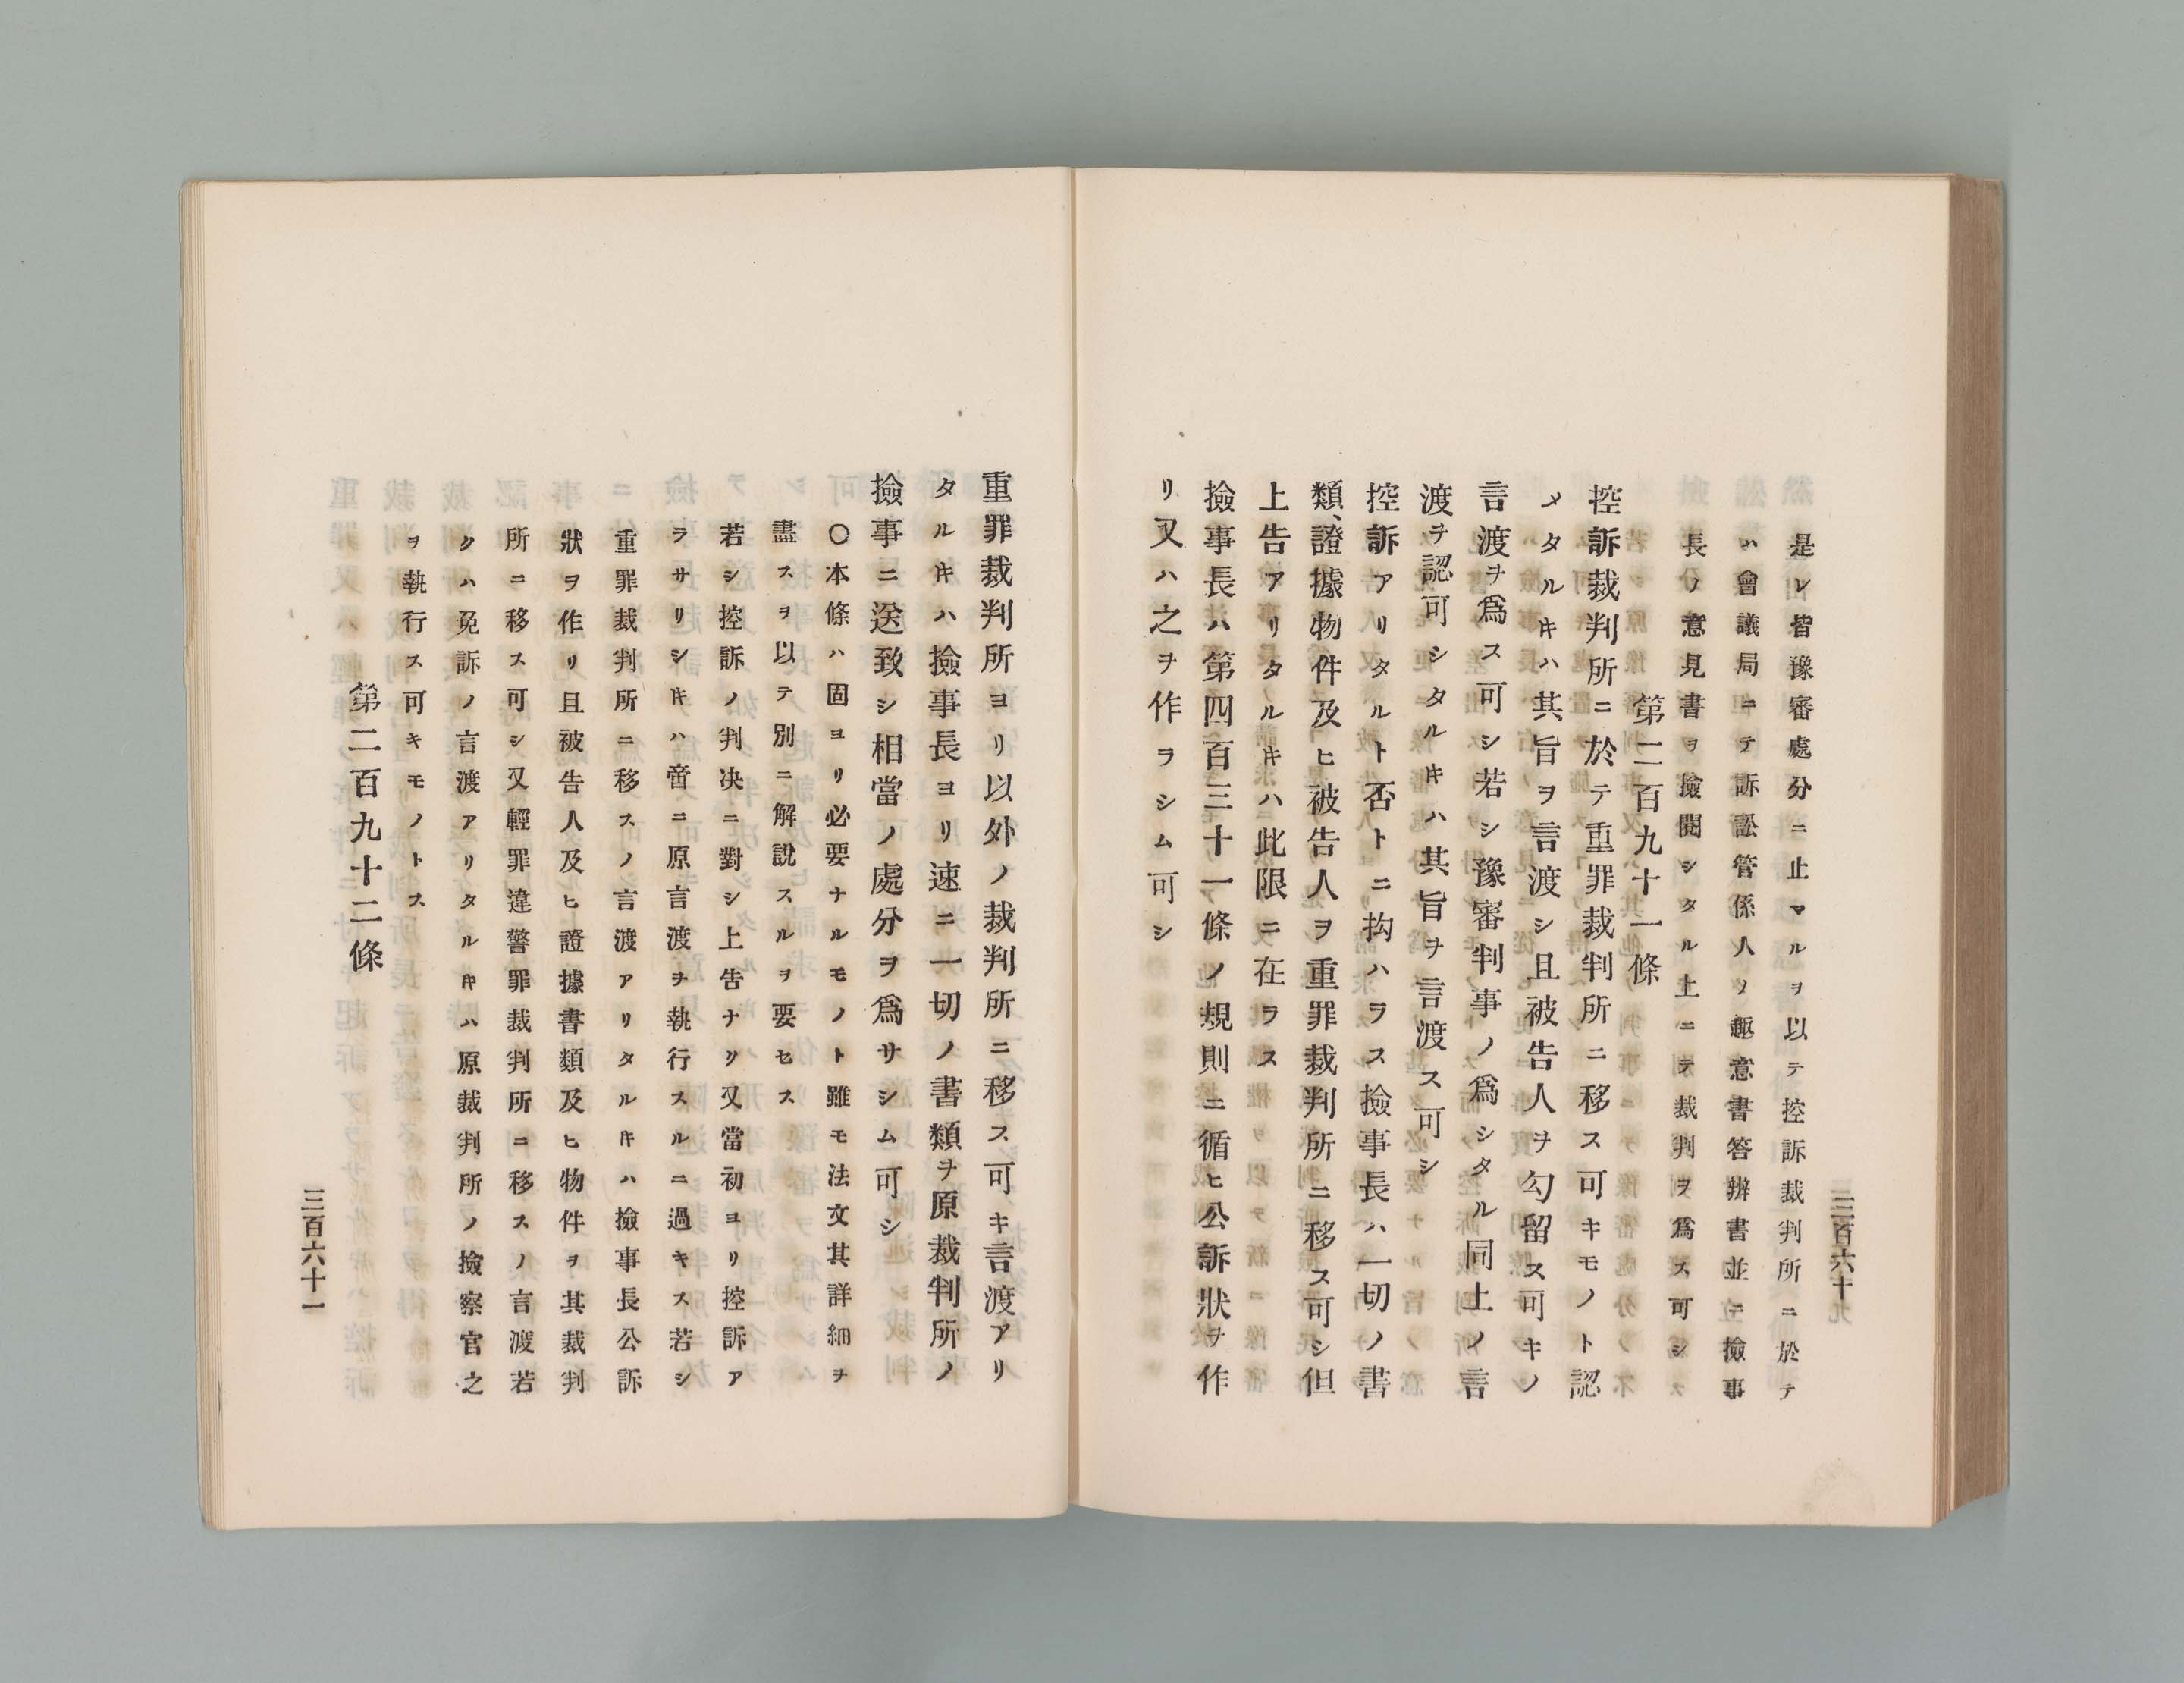 三百六十
是レ皆豫審處分ニ止マルヲ以テ控訴裁判所ニ於テ
ハ會議局ニテ訴訟管係人ノ趣意書答辨書並ニ撿事
長ノ意見書ヲ撿閲シタル上ニテ裁判ヲ爲ス可シ
第二百九十一條
控訴裁判所ニ於テ重罪裁判所ニ移ス可キモノト認
メタルキハ其旨ヲ言渡シ且被告人ヲ勾留ス可キノ
言渡ヲ爲ス可シ若シ豫審判事ノ爲シタル同上ノ言
渡ヲ認可シタルキハ其旨ヲ言渡ス可シ
控訴アリタルト否トニ拘ハラス撿事長ハ一切ノ書
類、證據物件及ヒ被告人ヲ重罪裁判所ニ移ス可シ但
上告アリタルキハ此限ニ在ラス
撿事長ハ第四百三十一條ノ規則ニ循ヒ公訴狀ヲ作
リ又ハ之ヲ作ラシム可シ
重罪裁判所ヨリ以外ノ裁判所ニ移ス可キ言渡アリ
タルキハ撿事長ヨリ速ニ一切ノ書類ヲ原裁判所ノ
撿事ニ送致シ相當ノ處分ヲ爲サシム可シ
〇本條ハ固ヨリ必要ナルモノト雖モ法文其詳細ヲ
盡スヲ以テ別ニ解說スルヲ要セス
若シ控訴ノ判决ニ對シ上告ナク又當初ヨリ控訴ア
ラサリシキハ啻ニ原言渡ヲ執行スルニ過キス若シ
重罪裁判所ニ移スノ言渡アリタルキハ撿事長公訴
狀ヲ作リ且被告人及ヒ證據書類及ヒ物件ヲ其裁判
所ニ移ス可シ又輕罪違警罪裁判所ニ移スノ言渡若
クハ免訴ノ言渡アリタルキハ原裁判所ノ撿察官之
ヲ執行ス可キモノトス
第二百九十二條
三百六十一